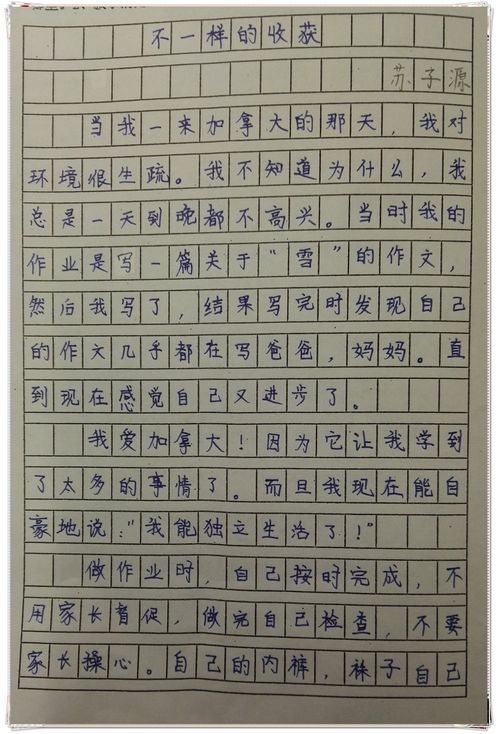 不一样的收获
苏子源
当我一来加拿大的那天，我对
环境很生疏。我不知道为什么，我
总是一天到晚都不高兴。当时我的
作业是写一篇关于“雪”的作文，
然后我写了，结果写完时发现自己
的作文几乎都在写爸爸，妈妈。直
到现在感觉自己又进步了。
我爱加拿大！因为它让我学到
了太多的事情了。而且我现在能自
豪地说：“我能独立生活了！”
做作业时，自己按时完成，不
用家长督促，做完自己检查，不要
家长操心。自己的内裤，袜子自己